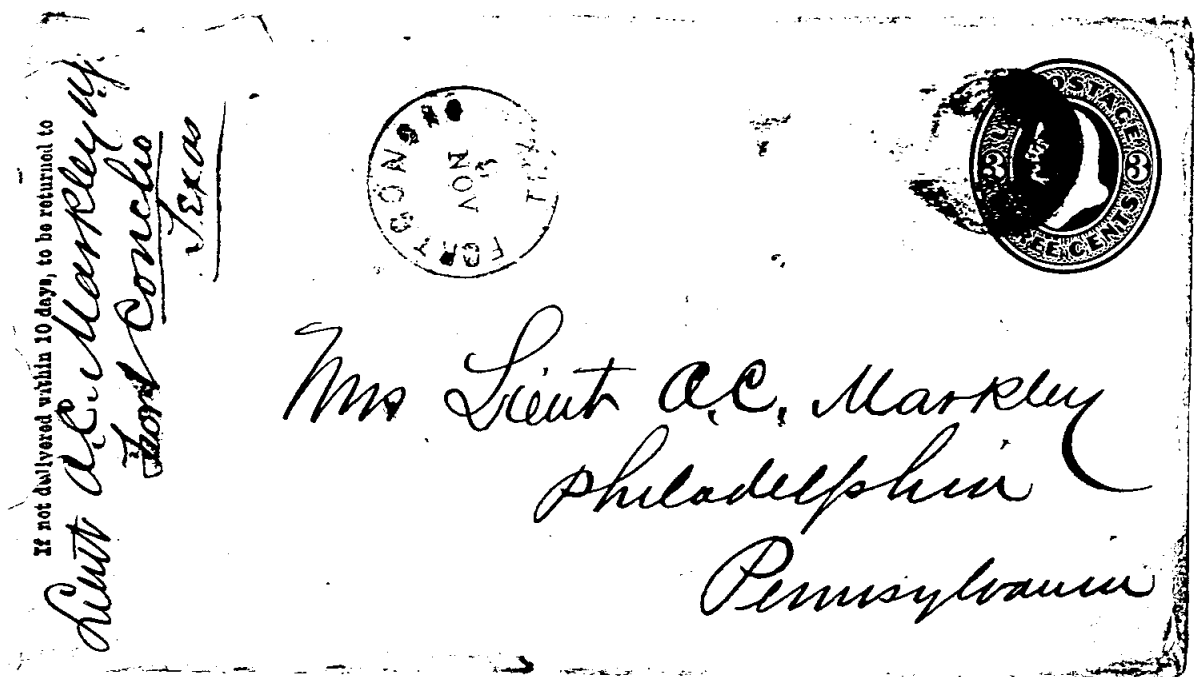 If not delivered within 10 days, to be returned to
Lieut A.C. Markley
Fort Concho
Texas
FORT CONCHO
NOV
5
TEX.
U
POSTAGE
3
3
CENTS
Mrs Lieut A.C. Markley
Philadelphia
Pennsylvania